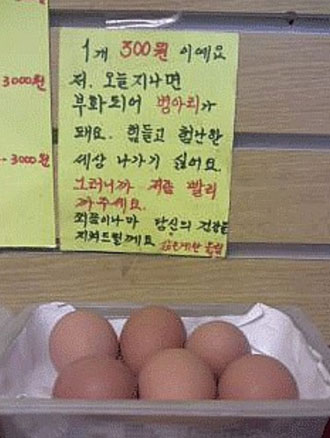 3000원
-3000원
1개 300원 이예요
저. 오늘지나면
부화되어 병아리가
돼요. 힘들고 험난한
세상 나가기 싫어요.
그러니까 저를 빨리
까주세요.
당신의 건강을
지켜드릴께요 삶은계란 올림